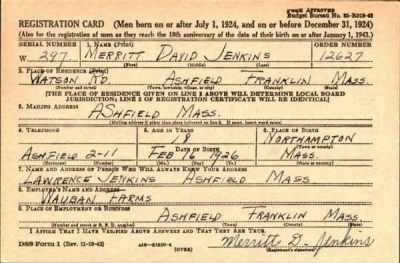 FORM APPROVED
Budget Bureau No. 33-R012-42
REGISTRATION CARD (Men born on or after July 1, 1924, and on or before December 31, 1924)
(Also for the registration of men as they reach the 18th anniversary of the date of their birth on or after January 1, 1943.)
SERIAL NUMBER 1. NAME (Print) ORDER NUMBER
W 297 MERRITT DAVID JENKINS 12627
(First) (Middle) (Last)
2. PLACE OF RESIDENCE (Print)
WATSON RD. ASHFIELD FRANKLIN MASS.
(Number and street) (Town, township, village, or city) (County) (State)
[THE PLACE OF RESIDENCE GIVEN ON LINE 2 ABOVE WILL DETERMINE LOCAL BOARD
JURISDICTION; LINE 2 OF REGISTRATION CERTIFICATE WILL BE IDENTICAL]
3. MAILING ADDRESS
ASHFIELD MASS.
[Mailing address if other than place indicated on line 2. If same, insert word same]
4. TELEPHONE 5. AGE IN YEARS 6. PLACE OF BIRTH
18 NORTHAMPTON
DATE OF BIRTH (Town or county)
ASHFIELD 2-11 FEB 16 1926 MASS.
(Exchange) (Number) (Mo.) (Day) (Yr.) (State or country)
7. NAME AND ADDRESS OF PERSON WHO WILL ALWAYS KNOW YOUR ADDRESS
LAWRENCE JENKINS ASHFIELD MASS
8. EMPLOYER'S NAME AND ADDRESS
WAUBAN FARMS
9. PLACE OF EMPLOYMENT OR BUSINESS
ASHFIELD FRANKLIN MASS.
(Number and street or R. F. D. number) (Town) (County) (State)
I AFFIRM THAT I HAVE VERIFIED ABOVE ANSWERS AND THAT THEY ARE TRUE.
DSS Form 1 (Rev. 11-16-42) (OVER) Merritt D. Jenkins
(Registrant's signature)